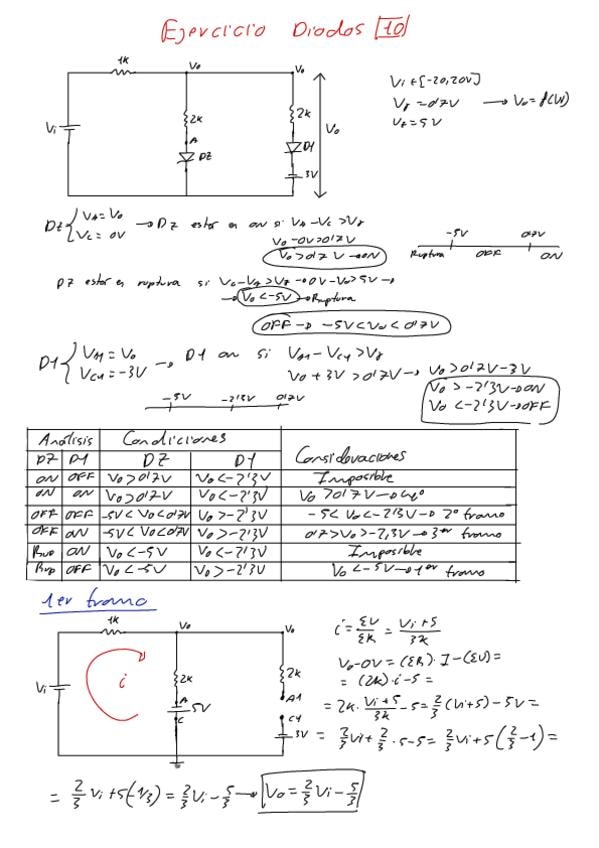 Ejercicio Diodos [10]
1K Vo Vo
Vi 2K 2K Vo
A DZ D1 3V
Vi ∈ [-20,20V]
Vγ = 0'7V → Vo = f(Vi)
Vz = 5V
DZ { VA = Vo → DZ estar en ON si VA - VC > Vγ
VC = 0V
Vo - 0V > 0'7V
Vo > 0'7V → ON
-5V 0'7V
Ruptura OFF ON
DZ estar en ruptura si VC - VA > Vz → 0V - Vo > 5V →
→ Vo < -5V → Ruptura
OFF → -5V < Vo < 0'7V
D1 { VA1 = Vo → D1 on si VA1 - VC1 > Vγ
VC1 = -3V
Vo + 3V > 0'7V → Vo > 0'7V - 3V
Vo > -2'3V → ON
Vo < -2'3V → OFF
-5V -2'3V 0'7V
Análisis Condiciones Consideraciones
DZ D1 DZ D1
ON OFF Vo > 0'7V Vo < -2'3V Imposible
ON ON Vo > 0'7V Vo < -2'3V Vo > 0'7V → 4º
OFF OFF -5V < Vo < 0'7V Vo > -2'3V -5 < Vo < -2'3V → 2º tramo
OFF ON -5V < Vo < 0'7V Vo > -2'3V 0'7 > Vo > -2,3V → 3er tramo
Rup ON Vo < -5V Vo < -2'3V Imposible
Rup OFF Vo < -5V Vo > -2'3V Vo < -5V → 1er tramo
1er tramo
1K Vo Vo
Vi i 2K 2K
A 5V C A1 C1 3V
i = ΣV/ΣR = Vi+5/3K
Vo - 0V = (ΣR) · I - (ΣV) =
= (2K) · i - 5 =
= 2K · Vi+5/3K - 5 = 2/3 (Vi+5) - 5V =
= 2/3 Vi + 2/3 · 5 - 5 = 2/3 Vi + 5 (2/3 - 1) =
= 2/3 Vi + 5(-1/3) = 2/3 Vi - 5/3 → Vo = 2/3 Vi - 5/3